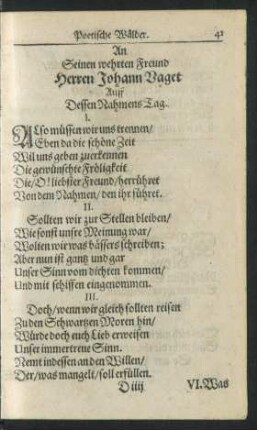 Poetische Wälder. 41
An
Seinen wehrten Freund
Herren Johann Vaget
Auff
Dessen Nahmens Tag.
I.
Also müssen wir uns trennen/
Eben da die schöne Zeit
Wil uns geben zuerkennen
Die gewünschte Fröligkeit
Die/O! liebster Freund/herrühret
Von dem Nahmen/ den ihr führet.
II.
Sollten wir zur Stellen bleiben/
Wie sonst unsre Meinung war/
Wolten wir was bässers schreiben;
Aber nun ist gantz und gar
Unser Sinn vom dichten kommen/
Und mit schiffen eingenommen.
III.
Doch/wenn wir gleich sollten reisen
Zu den Schwartzen Moren hin/
Würde doch euch Lieb erweisen
Unser immertreue Sinn.
Nemt indessen an den Willen/
Der/was mangelt/ soll erfüllen.
D iiij VI. Was